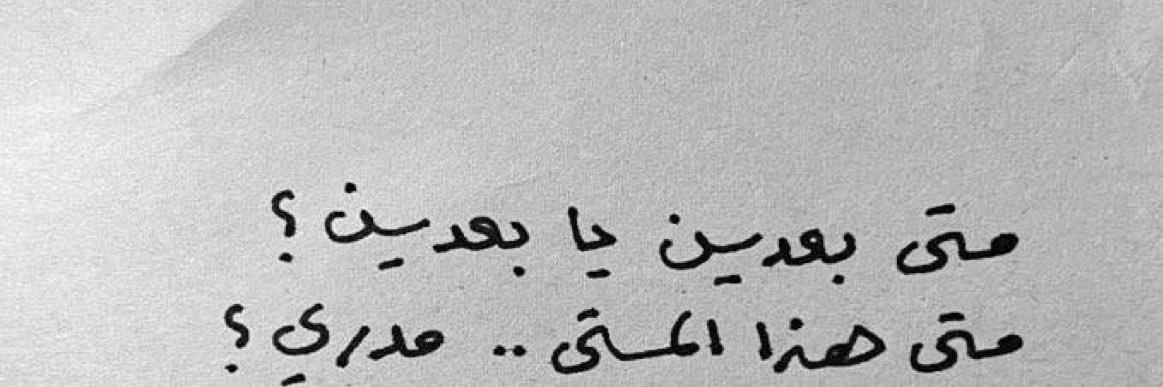 متى بعدين يا بعدين ؟
متى هذا المتى .. مدري ؟